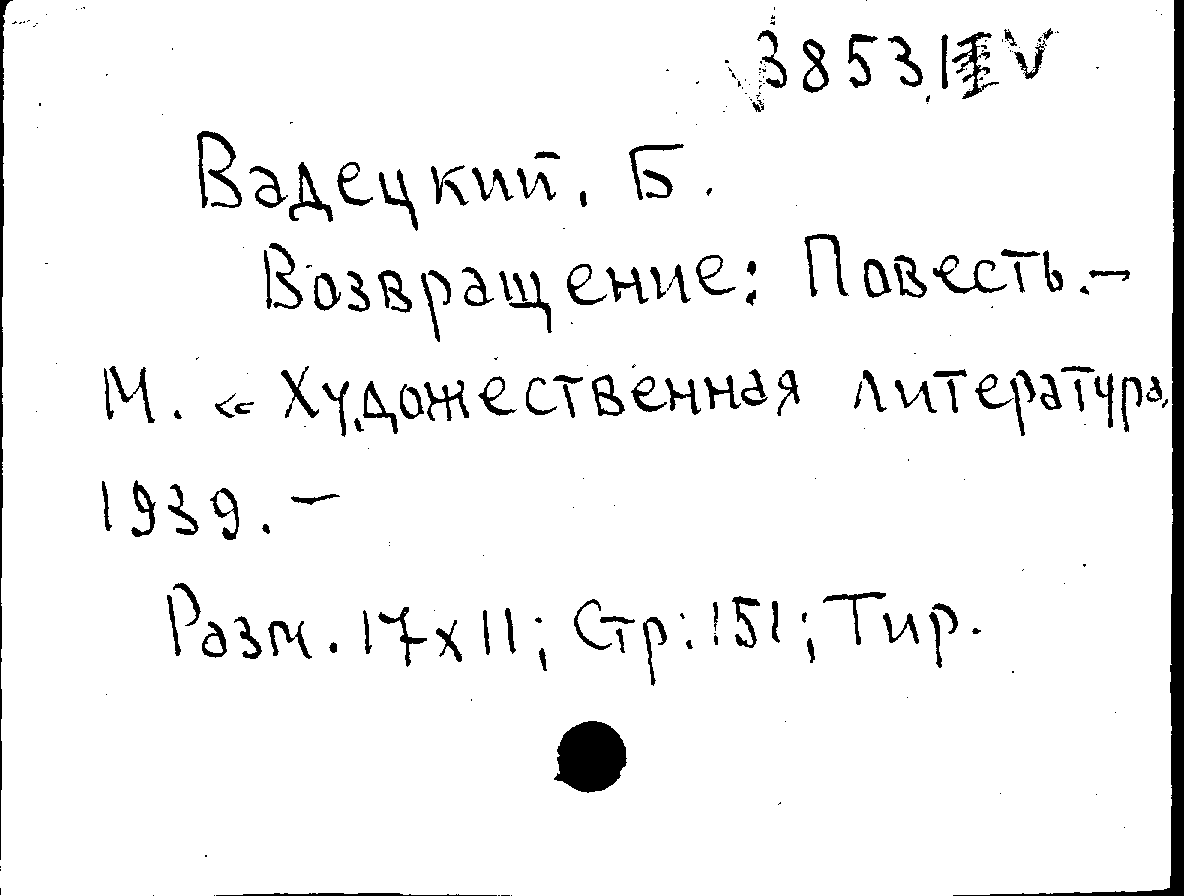 3853 V
Вадецкий, Б.
Возвращение: Повесть.-
М. « Художественная литература,
1939. -
Разм. 17x11; Стр: 151; Тир.